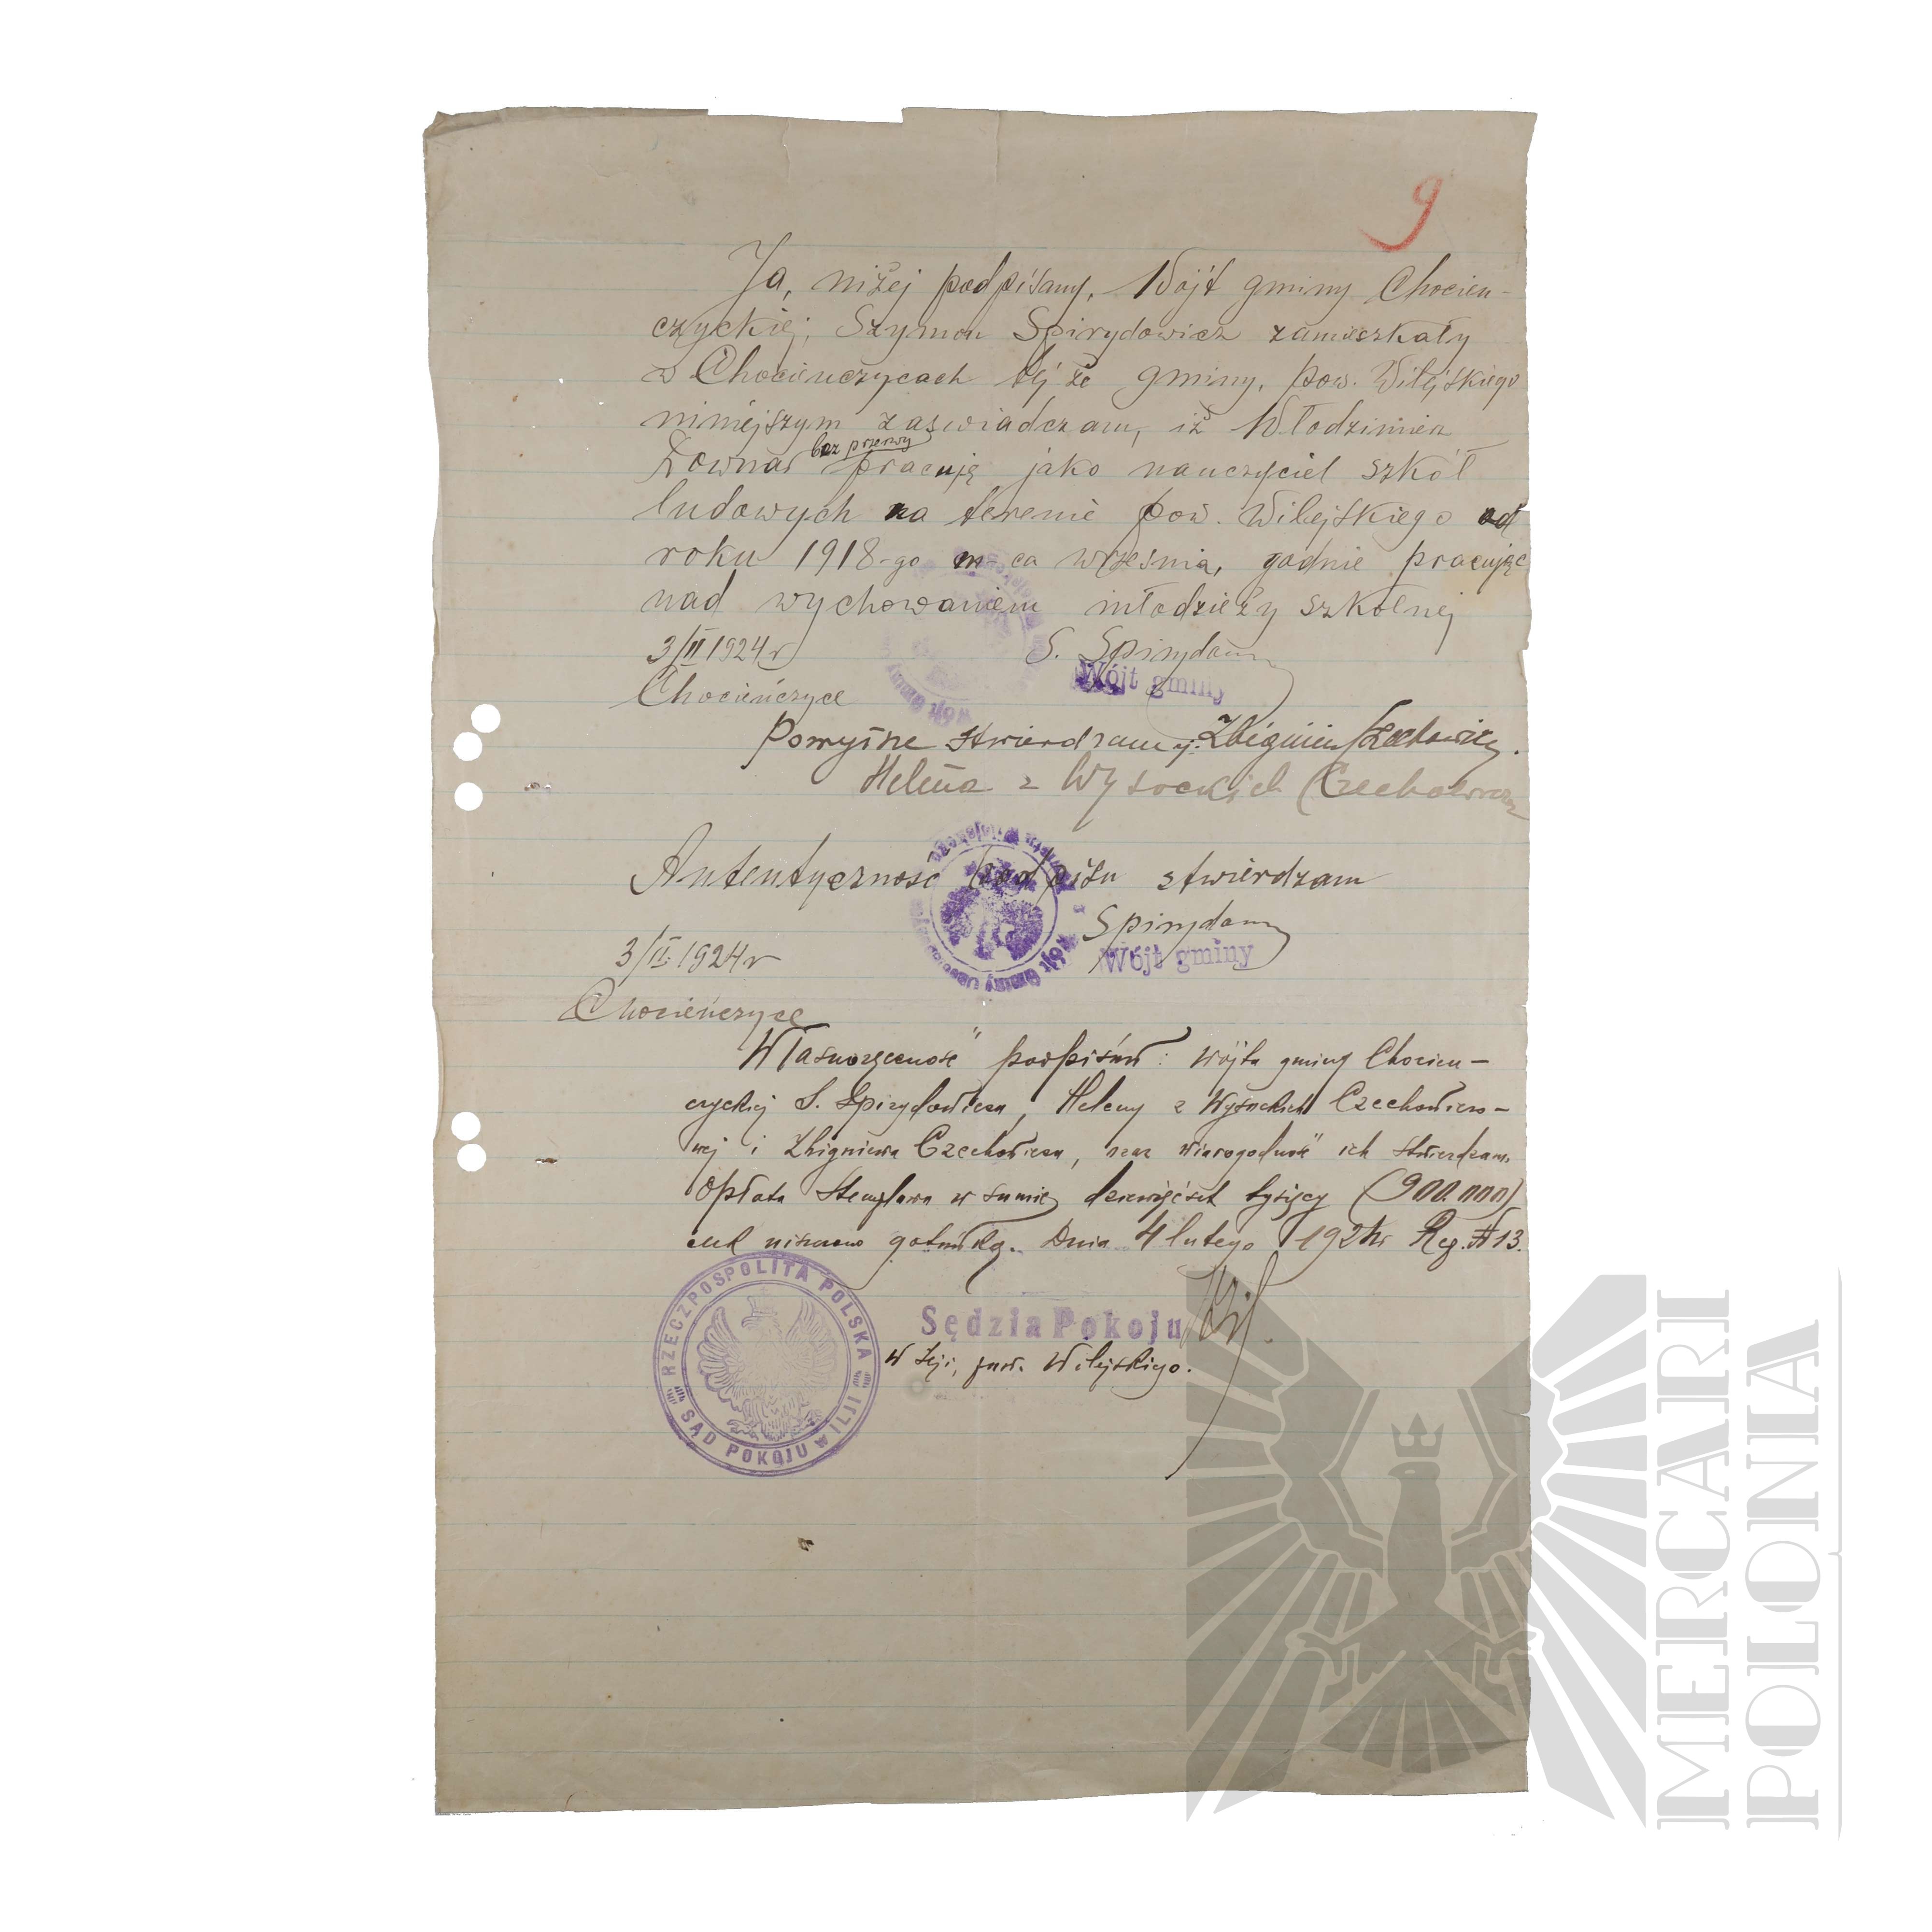 9
Ja, niżej podpisany, Wójt gminy Chocień-
czyckiej, Szymon Spirydowicz zamieszkały
w Chocieńczycach tej że gminy, pow. Wilejskiego
niniejszym zaświadczam, iż Włodzimierz
bez przerwy
pracuję jako nauczyciel szkół
ludowych na terenie pow. Wilejskiego od
roku 1918-go m-ca września, godnie pracując
nad wychowaniem młodzieży szkolnej
3/II 1924 r
S. Spirydow
Wójt gminy
Chocieńczyce
Powyższe stwierdzamy: Zbigniew Czechowicz.
Helena z Wysockich Czechowiczow
Autentyczność podpisu stwierdzam
Spirydow
Wójt gminy
3/II 1924 r
Chocieńczyce
Własnoręczność podpisów: wójta gminy Chocień-
czyckiej S. Spirydowicza, Heleny z Wysockich Czechowiczo-
wej i Zbigniewa Czechowicza, oraz wiarogodność ich stwierdzam.
Opłata stemplowa w sumie dziewięćset tysięcy (900.000)
mk uiszczono gotówką. Dnia 4 lutego 1924 r Reg. № 13.
RZECZPOSPOLITA POLSKA
SĄD POKOJU w ILJI
Sędzia Pokoju
w Ilji, pow. Wilejskiego.
MERCARI
POLONIA